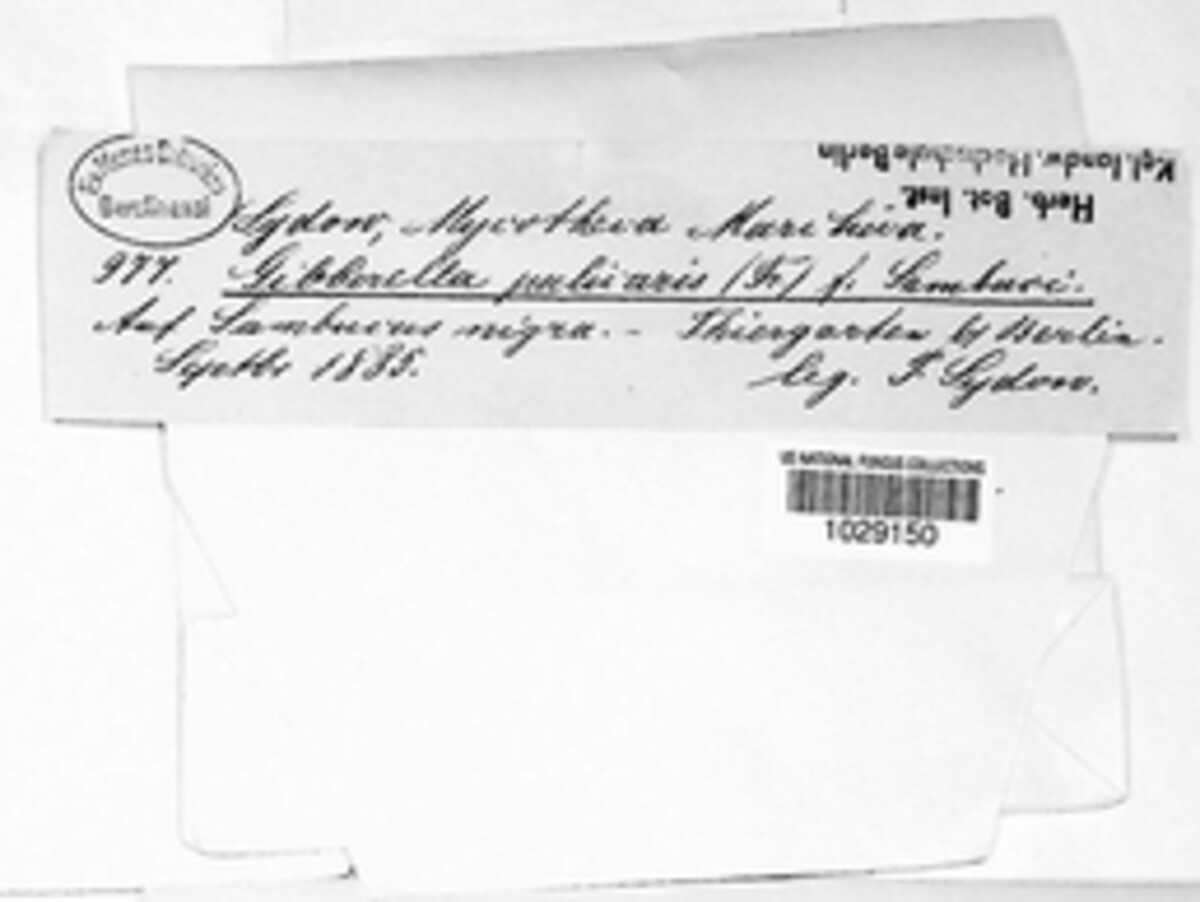 Kgl. landw. Hochschule Berlin
Herb. Bot. Inst.
Sydow, Mycotheca Marchica.
977. Gibberella pulicaris (Fr) f. Sambuci.
Auf Sambucus nigra. - Thiergarten b/ Berlin.
Septbr 1885. leg. P. Sydow.
US NATIONAL FUNGUS COLLECTIONS
1029150